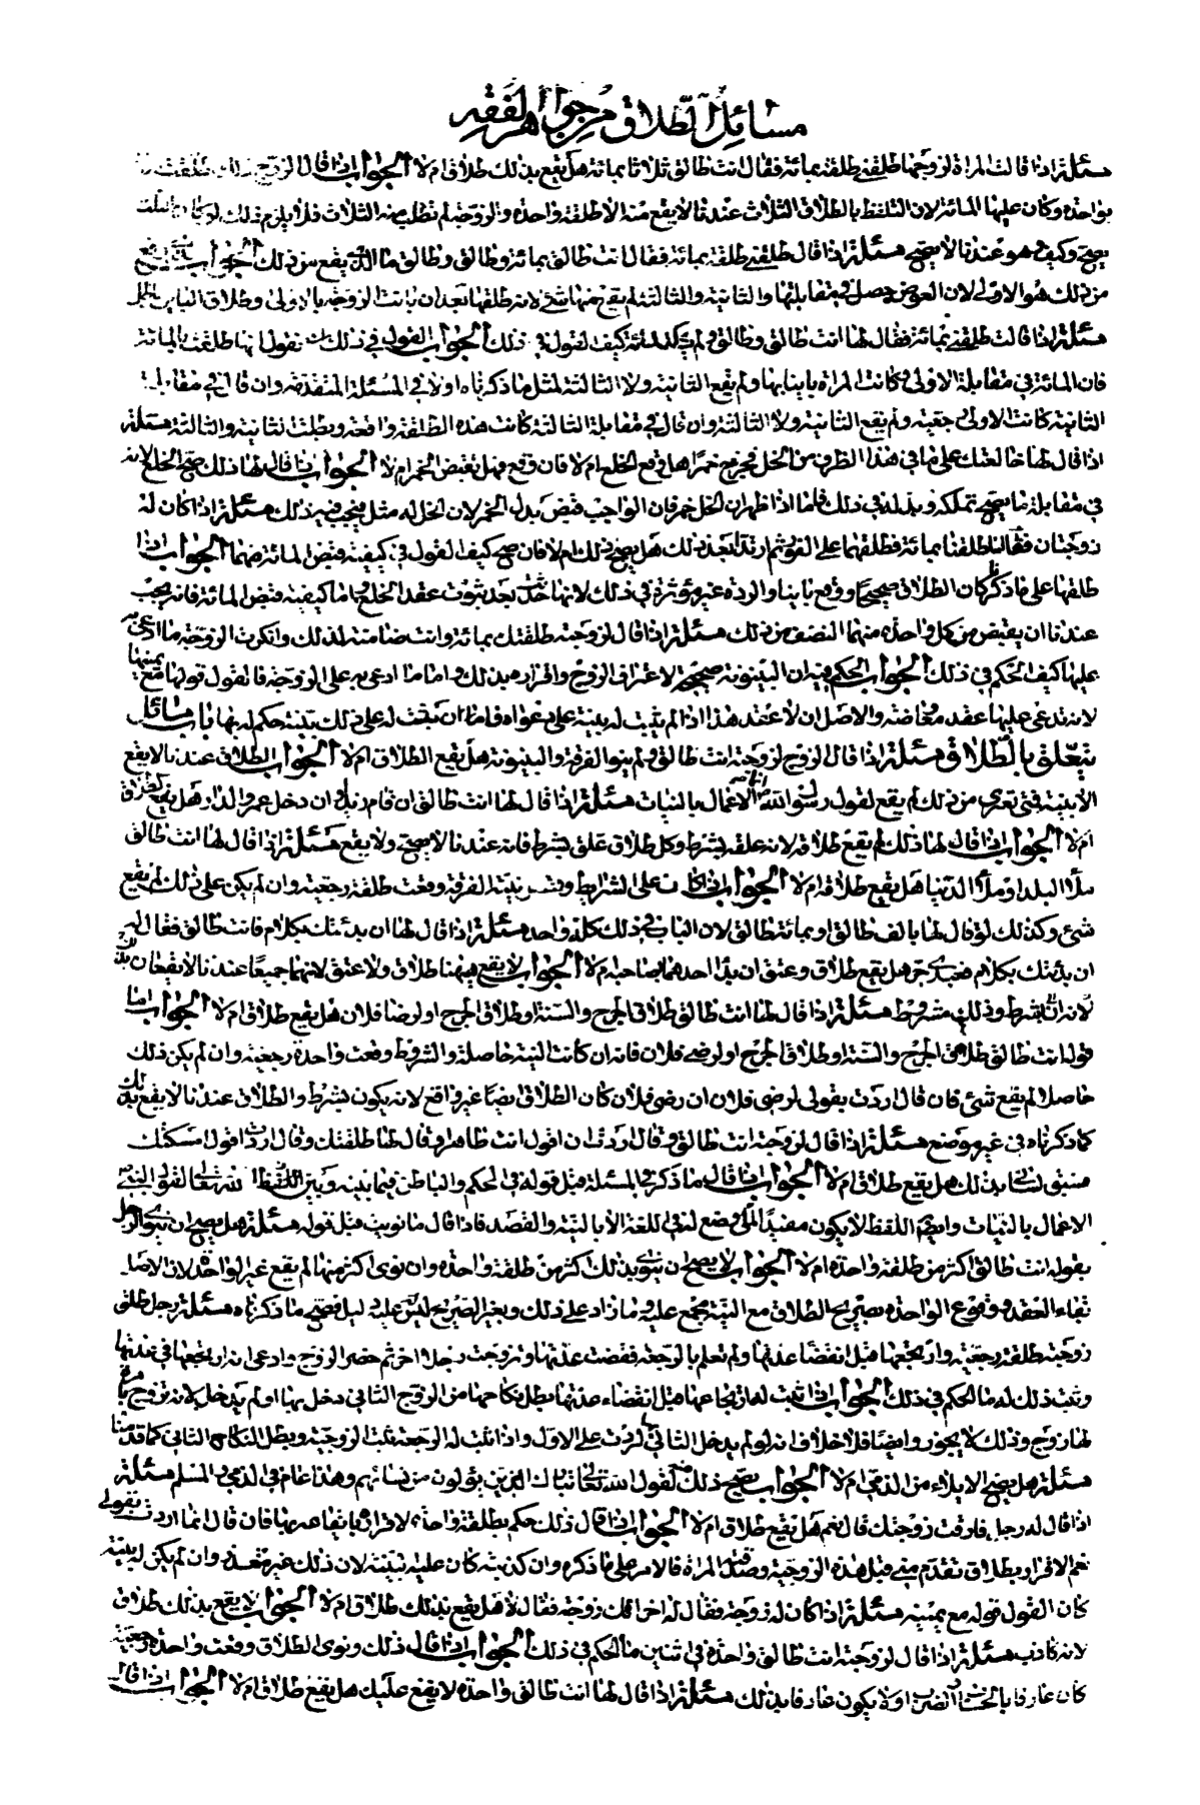 مسائل الطلاق من جواهر الفقه
مسئلة اذا قالت المراة لزوجها طلقني طلقة بمائة فقال انت طالق ثلاثا بمائة هل يقع بذلك طلاق ام لا الجواب اذا قال الزوج
بواحدة وكان عليها المائة لان التلفظ بالطلاق الثلاث عندنا لا يقع منه الا طلقة واحدة والزوجة لم تطلب منه الثلاث فلا يلزم ذلك
يصح وكيف وهو عندنا لا يصح مسئلة اذا قال طلقني طلقة بمائة فقال انت طالق بمائة وطالق وطالق ما الذي يقع من ذلك الجواب
من ذلك هو الاولى لان العوض حصل في مقابلتها والثانية والثالثة لم يقع منها شئ لانه طلقها بعد ان بانت الزوجة بالاولى وطلاق الباين باطل
مسئلة اذا قالت طلقني بمائة فقال لها انت طالق وطالق ولم كيف القول في ذلك الجواب القول في ذلك
فان المائة في مقابلة الاولى وكانت المراة باينا بها ولم يقع الثانية ولا الثالثة لمثل ما ذكرناه اولا في المسئلة المتقدمة وان قال في مقابلة
الثانية كانت الاولى رجعية ولم يقع الثانية ولا الثالثة وان قال في مقابلة الثالثة كانت هذه الطلقة واقعة وبطلت الثانية والثالثة مسئلة
اذا قال لها خالعتك على ما في هذا الظرف من الخل فخرج خمرا هل يقع الخلع ام لا فان وقع فهل يقبض الخمر ام لا الجواب اذا قال لها ذلك صح الخلع لانه
في مقابلة ما يصح تملكه وبذله في ذلك فلما اذا ظهر ان الخل خمر فان الواجب قبض بدل الخمر لان الخل له مثل فيجب فيه ذلك مسئلة اذا كان له
زوجتان فقالتا طلقنا بمائة فطلقهما على الفور ثم ارتدتا بعد ذلك هل يصح ذلك ام لا فان صح كيف القول في كيفية قبض المائة منهما الجواب اذا
طلقها على ما ذكر كان الطلاق صحيحا ووقع باينا والردة غير مؤثرة في ذلك لانها بعد ثبوت عقد الخلع واما كيفية قبض المائة فانه يجب
عندنا ان يقبض من كل واحدة منهما النصف من ذلك مسئلة اذا قال لزوجته طلقتك بمائة وانت ضامنة لذلك وانكرت الزوجة ما ادعى به
عليها كيف الحكم في ذلك الجواب الحكم فيه ان البينونة صحيحة لاعتراف الزوج واقراره بذلك واما ما ادعى به على الزوجة فالقول قولها مع يمينها
لانه تدعي عليها عقد معاوضة والاصل ان لا عقد هذا اذا لم يثبت له بينة على دعواه فاما ان يثبت له على ذلك بينة حكم له بها باب مسائل
يتعلق بالطلاق مسئلة اذا قال الزوج لزوجته انت طالق ولم ينو الفرقة والبينونة هل يقع الطلاق ام لا الجواب الطلاق عندنا لا يقع
الا بنية فمتى تعرى من ذلك لم يقع لقول رسول الله الاعمال بالنيات مسئلة اذا قال لها انت طالق ان قام زيد او ان دخل عمرو الدار هل يقع الطلاق
ام لا الجواب اذا قال لها ذلك لم يقع طلاقه لانه علقه بشرط وكل طلاق علق بشرط فانه عندنا لا يصح ولا يقع مسئلة اذا قال لها انت طالق
ملأ البلد او ملأ الدنيا هل يقع طلاقه ام لا الجواب اذا كان على الشرايط ونية الفرقة وقعت طلقة رجعية وان لم يكن على ذلك لم يقع
شئ وكذلك لو قال لها بالف طالق او بمائة طالق لان الباب في ذلك كله واحد مسئلة اذا قال لها ان بدئتك بكلام فانت طالق فقال له
ان بدئتك بكلام فعبدي حر هل يقع طلاق وعتق ان بدأ احدهما صاحبه ام لا الجواب لا يقع هيهنا طلاق ولا عتق لانهما جميعا عندنا لا يقعان
لانه بشرط وذلك مشروط مسئلة اذا قال لها انت طالق طلاق الحرج والسنة او طلاق الحرج او لرضا فلان هل يقع طلاق ام لا الجواب اما
قوله انت طالق طلاق الحرج والسنة او طلاق الحرج او لرضى فلان فانه ان كانت النية حاصلة والشروط وقعت واحدة رجعية وان لم يكن ذلك
حاصلا لم يقع شئ فان قال اردت بقولي لرضى فلان ان رضى فلان كان الطلاق ايضا غير واقع لانه يكون بشرط والطلاق عندنا لا يقع بذلك
كما ذكرناه في غير موضع مسئلة اذا قال لزوجته انت طالق وقال اردت ان اقول انت طاهر او قال لها طلقتك وقال اردت اقول امسكتك
فسبق لساني بذلك هل يقع طلاق ام لا الجواب اذا قال ما ذكر في المسئلة قبل قوله في الحكم والباطن فيما بينه وبين الله تعالى لقول النبي
الاعمال بالنيات وايضا اللفظ لا يكون مفيدا لما وضع له في اللغة الا بالنية والقصد فاذا قال ما نويت قبل قوله مسئلة هل يصح ان ينوي الرجل
بقوله انت طالق اكثر من طلقة واحدة ام لا الجواب لا يصح ان ينوي بذلك اكثر من طلقة واحدة وان نوى اكثر منها لم يقع غير الواحدة لان الاصل
بقاء العقد ووقوع الواحدة بصريح الطلاق مع النية مجمع عليه وما زاد على ذلك وبغير الصريح ليس عليه دليل فصح ما ذكرناه مسئلة رجل طلق
زوجته طلقة رجعية وارتجعها قبل انقضا عدتها ولم تعلم بالرجعة فقضت عدتها وتزوجت رجلا اخر ثم حضر الزوج وادعى انه ارتجعها في عدتها
وثبت ذلك له ما الحكم في ذلك الجواب اذا ثبت له ارتجاعها قبل انقضاء عدتها بطل نكاحها من الزوج الثاني دخل بها او لم يدخل لانه تزوج بامرأة
لها زوج وذلك لا يجوز وايضا فلا خلاف انه لو لم يدخل الثاني بها لردت على الاول واذا ثبت له الرجعة ثبت الزوجية وبطل النكاح الثاني كما قدمنا
مسئلة هل يصح الايلاء من الذمي ام لا الجواب يصح ذلك منه لقول الله تعالى للذين يؤلون من نسائهم وهذا عام في الذمي والمسلم مسئلة
اذا قال له رجل فارقت زوجتك قال نعم هل يقع طلاق ام لا الجواب اذا قال ذلك حكم بطلقة واحدة لاقراره بايقاعه بها فان قال انما اردت بقولي
نعم الاقرار بطلاق تقدم مني قبل هذه الزوجية وصدقته المراة فالامر على ما ذكره وان كذبته كان عليه بينة لان ذلك غير متعذر وان لم يكن له بينة
كان القول قوله مع يمينه مسئلة اذا كان له زوجة فقال له اخر الك زوجة فقال لا هل يقع بذلك طلاق ام لا الجواب لا يقع بذلك طلاق
لانه كاذب مسئلة اذا قال لزوجته انت طالق واحدة في اثنتين ما الحكم في ذلك الجواب اذا قال ذلك ونوى الطلاق وقعت واحدة رجعية
كان عارفا بالحساب والضرب او لا يكون عارفا بذلك مسئلة اذا قال لها انت طالق واحدة لا يقع عليك هل يقع طلاق ام لا الجواب اذا قال